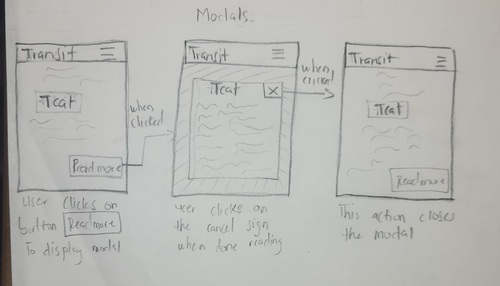 Modals.
Transit
Text
Read more
when
clicked
User clicks on
button Read more
To display modal
Transit
Text X
user clicks on
the cancel sign
when done reading
when
clicked
Transit
Text
Read more
This action closes
the modal